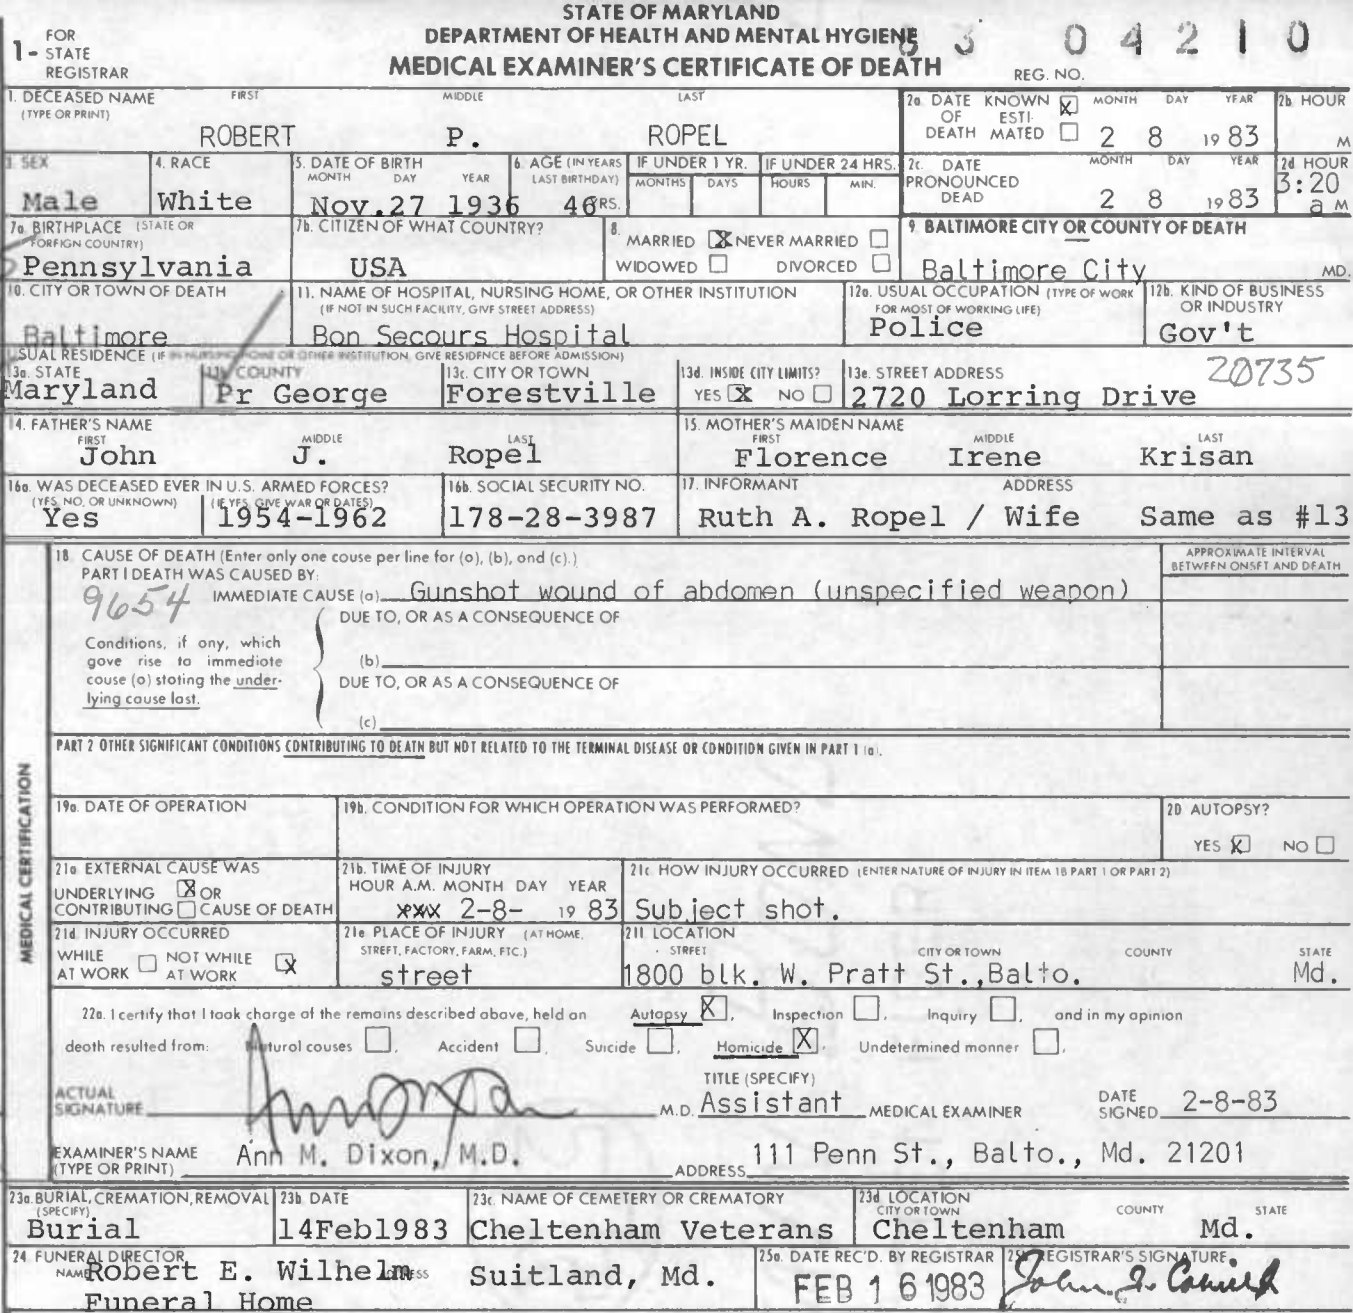 STATE OF MARYLAND
DEPARTMENT OF HEALTH AND MENTAL HYGIENE
MEDICAL EXAMINER'S CERTIFICATE OF DEATH
1- FOR STATE REGISTRAR
REG. NO. 83 04210
1. DECEASED NAME (TYPE OR PRINT) FIRST MIDDLE LAST
ROBERT P. ROPEL
2a. DATE OF DEATH KNOWN X ESTIMATED MONTH DAY YEAR
2 8 1983
2b. HOUR M
3. SEX
Male
4. RACE
White
5. DATE OF BIRTH MONTH DAY YEAR
Nov.27 1936
6. AGE (IN YEARS LAST BIRTHDAY)
46 YRS.
IF UNDER 1 YR. MONTHS DAYS
IF UNDER 24 HRS. HOURS MIN.
2c. DATE PRONOUNCED DEAD MONTH DAY YEAR
2 8 1983
2d. HOUR
3:20 a M
7a. BIRTHPLACE (STATE OR FOREIGN COUNTRY)
Pennsylvania
7b. CITIZEN OF WHAT COUNTRY?
USA
8. MARRIED X NEVER MARRIED
WIDOWED DIVORCED
9. BALTIMORE CITY OR COUNTY OF DEATH
Baltimore City MD.
10. CITY OR TOWN OF DEATH
Baltimore
11. NAME OF HOSPITAL, NURSING HOME, OR OTHER INSTITUTION
(IF NOT IN SUCH FACILITY, GIVE STREET ADDRESS)
Bon Secours Hospital
12a. USUAL OCCUPATION (TYPE OF WORK FOR MOST OF WORKING LIFE)
Police
12b. KIND OF BUSINESS OR INDUSTRY
Gov't
USUAL RESIDENCE (IF IN NURSING HOME OR OTHER INSTITUTION, GIVE RESIDENCE BEFORE ADMISSION)
13a. STATE
Maryland
13b. COUNTY
Pr George
13c. CITY OR TOWN
Forestville
13d. INSIDE CITY LIMITS?
YES X NO
13e. STREET ADDRESS 20735
2720 Lorring Drive
14. FATHER'S NAME FIRST MIDDLE LAST
John J. Ropel
15. MOTHER'S MAIDEN NAME FIRST MIDDLE LAST
Florence Irene Krisan
16a. WAS DECEASED EVER IN U.S. ARMED FORCES?
(YES, NO, OR UNKNOWN) (IF YES, GIVE WAR OR DATES)
Yes 1954-1962
16b. SOCIAL SECURITY NO.
178-28-3987
17. INFORMANT ADDRESS
Ruth A. Ropel / Wife Same as #13
MEDICAL CERTIFICATION
18. CAUSE OF DEATH (Enter only one cause per line for (a), (b), and (c).)
APPROXIMATE INTERVAL BETWEEN ONSET AND DEATH
PART I DEATH WAS CAUSED BY:
9654 IMMEDIATE CAUSE (a) Gunshot wound of abdomen (unspecified weapon)
DUE TO, OR AS A CONSEQUENCE OF
Conditions, if any, which gave rise to immediate cause (a) stating the underlying cause last.
(b)
DUE TO, OR AS A CONSEQUENCE OF
(c)
PART 2 OTHER SIGNIFICANT CONDITIONS CONTRIBUTING TO DEATH BUT NOT RELATED TO THE TERMINAL DISEASE OR CONDITION GIVEN IN PART 1 (a).
19a. DATE OF OPERATION
19b. CONDITION FOR WHICH OPERATION WAS PERFORMED?
20 AUTOPSY?
YES X NO
21a. EXTERNAL CAUSE WAS
UNDERLYING X OR
CONTRIBUTING CAUSE OF DEATH
21b. TIME OF INJURY
HOUR A.M. MONTH DAY YEAR
2-8- 1983
21c. HOW INJURY OCCURRED (ENTER NATURE OF INJURY IN ITEM 18 PART 1 OR PART 2)
Subject shot.
21d. INJURY OCCURRED
WHILE AT WORK NOT WHILE AT WORK X
21e. PLACE OF INJURY (AT HOME, STREET, FACTORY, FARM, ETC.)
street
21f. LOCATION
STREET CITY OR TOWN COUNTY STATE
1800 blk. W. Pratt St., Balto. Md.
22a. I certify that I took charge of the remains described above, held an Autopsy X, Inspection, Inquiry, and in my opinion
death resulted from: Natural causes, Accident, Suicide, Homicide X, Undetermined manner,
ACTUAL SIGNATURE M.D.
TITLE (SPECIFY)
Assistant MEDICAL EXAMINER
DATE SIGNED 2-8-83
EXAMINER'S NAME (TYPE OR PRINT) Ann M. Dixon, M.D.
ADDRESS 111 Penn St., Balto., Md. 21201
23a. BURIAL, CREMATION, REMOVAL (SPECIFY)
Burial
23b. DATE
14Feb1983
23c. NAME OF CEMETERY OR CREMATORY
Cheltenham Veterans
23d. LOCATION
CITY OR TOWN COUNTY STATE
Cheltenham Md.
24. FUNERAL DIRECTOR
NAME Robert E. Wilhelm ADDRESS Suitland, Md.
Funeral Home
25a. DATE REC'D. BY REGISTRAR
FEB 16 1983
REGISTRAR'S SIGNATURE